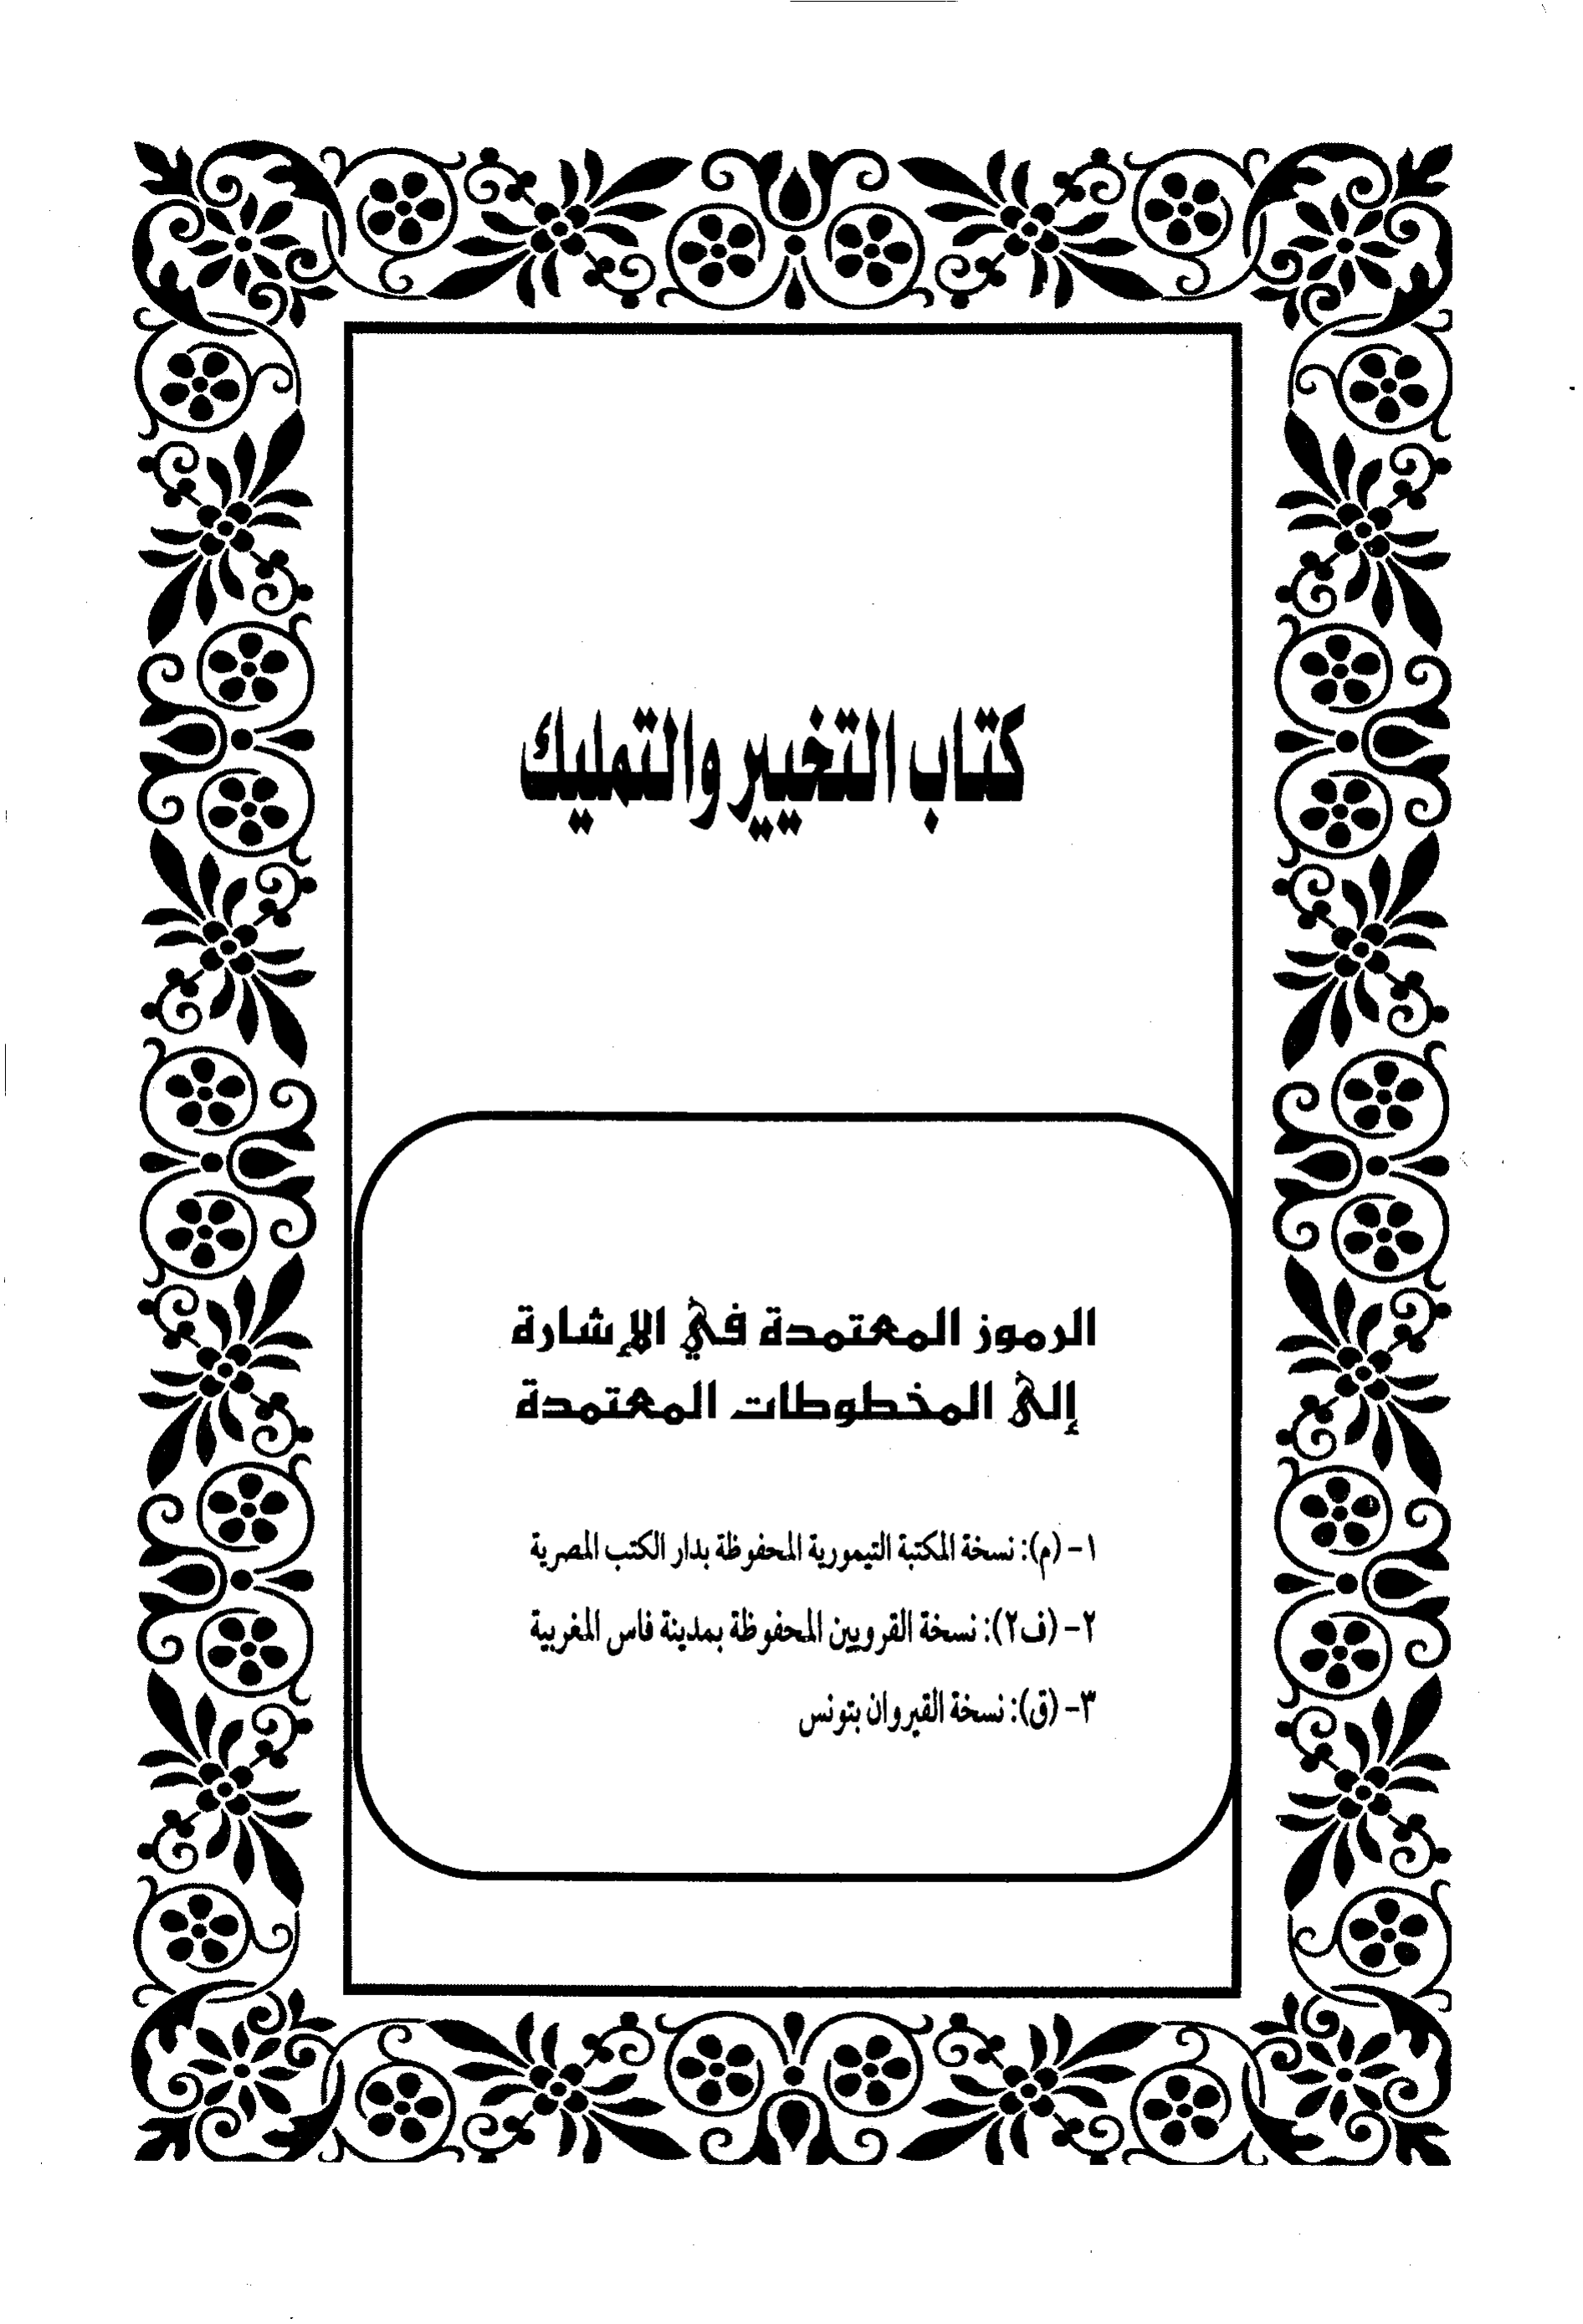 كتاب التخيير والتمليك
الرموز المعتمدة في الإشارة
إلى المخطوطات المعتمدة
١- (م): نسخة المكتبة التيمورية المحفوظة بدار الكتب المصرية
٢- (ف٢): نسخة القرويين المحفوظة بمدينة فاس المغربية
٣- (ق): نسخة القيروان بتونس